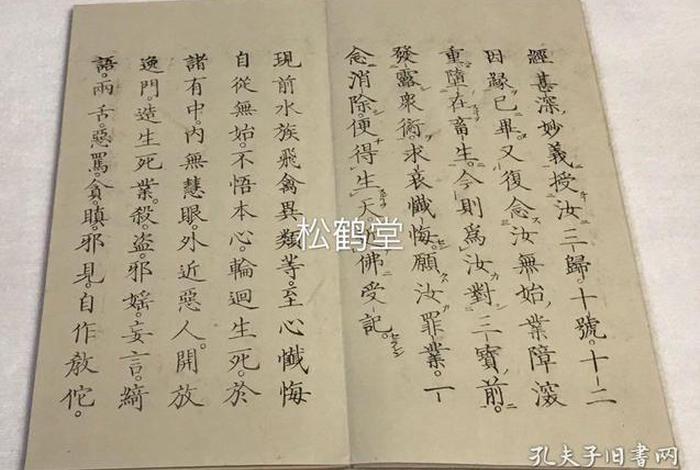 經甚深。妙義。授汝三歸。十號。十二
因緣。已畢。又復念。汝無始。業障深
重墮在畜生。今則爲汝對三寶前。
發露衆。求哀懺悔。願汝罪業。一
念消除。便得生天。佛受記。
現前水族飛禽異類等。至心懺悔
自從無始。不悟本心。輪迴生死。於
諸有中。內無慧眼。外近惡人。開放
逸門。造生死業。殺。盜。邪婬。妄言。綺
語。兩舌。惡罵。貪。瞋。邪見。自作敎佗。
松鹤堂
孔夫子旧书网